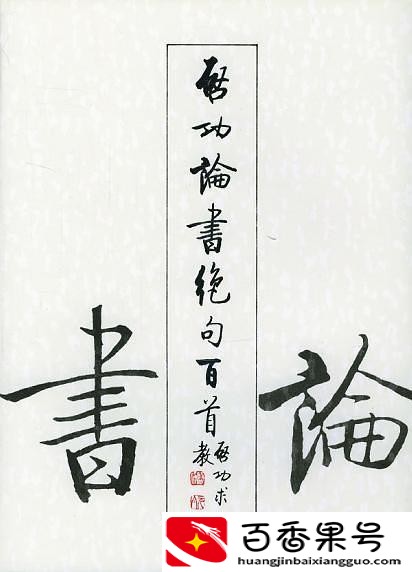 啓功論書絶句百首
啓功求
教
論
書
百香果号
huangjinbaixiangguo.com